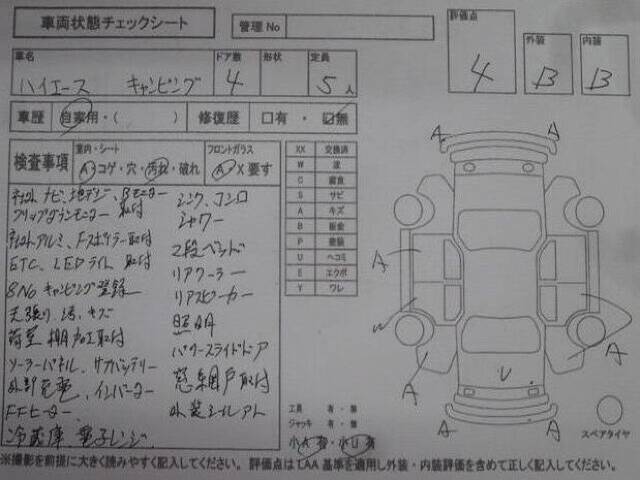 車両状態チェックシート
管理No
評価点 4
外装 B
内装 B
車名 ハイエース キャンピング
ドア数 4
形状
定員 5人
車歴 自家用・( )
修復歴 □有・☑無
検査事項
室内・シート
A・コゲ・穴・汚れ・破れ
フロントガラス
A・X要す
社外ナビ、地デジ、Bモニター
フリップダウンモニター 取付
社外アルミ、Fスポイラー取付
ETC、LEDライト 取付
8No キャンピング登録
天張り 汚、キズ
荷室 棚加工取付
ソーラーパネル、サブバッテリー
外部電電、インバーター
FFヒーター
冷蔵庫、電子レンジ
シンク、コンロ
シャワー
2段ベッド
リアクーラー
リアスピーカー
照明
パワースライドドア
窓網戸取付
外装シールアト
XX 交換済
W 波
C 腐食
S サビ
A キズ
B 板金
P 塗装
U ヘコミ
E エクボ
Y ワレ
A A
A
W
A A
A
U
A A
工具 有・無
ジャッキ 有・無
小A有・小U有
スペアタイヤ
※撮影を前提に大きく読みやすく記入してください。 評価点はLAA基準を適用し外装・内装評価を含めて正しく記入してください。